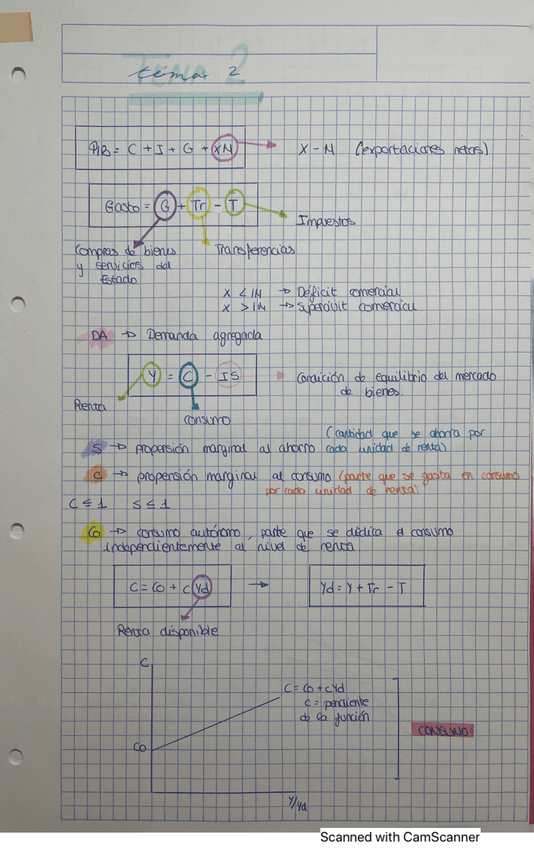 tema 2
PIB = C + I + G + XN → X - M (exportaciones netas)
Gasto = G + Tr - T
Impuestos
Compras de bienes
y servicios del
Estado
Transferencias
X < IM → Déficit comercial
X > IM → Superávit comercial
DA → Demanda agregada
Y = C - IS → Condición de equilibrio del mercado
de bienes.
Renta
consumo
(cantidad que se ahorra por
S → propensión marginal al ahorro cada unidad de renta)
C → propensión marginal al consumo (parte que se gasta en consumo
por cada unidad de renta)
C ≤ 1 S ≤ 1
Co → consumo autónomo, parte que se dedica al consumo
independientemente al nivel de renta
C = Co + cYd → Yd = Y + Tr - T
Renta disponible
C
C = Co + cYd
C = pendiente
de la función
CONSUMO
Co
Y/Yd
Scanned with CamScanner